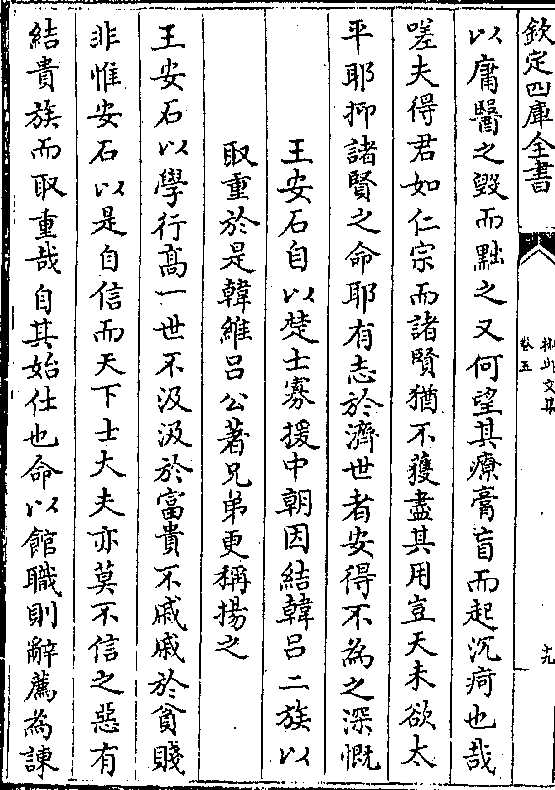 欽定四庫全書
卷五
十九
以庸醫之毀而黜之又何望其療膏肓而起沉疴也哉
嗟夫得君如仁宗而諸賢猶不獲盡其用豈天未欲太
平耶抑諸賢之命耶有志於濟世者安得不為之深慨
王安石自以楚士寡援中朝因結韓吕二族以
取重於是韓維吕公著兄弟更稱揚之
王安石以學行高一世不汲汲於富貴不戚戚於貧賤
非惟安石以是自信而天下士大夫亦莫不信之惡有
結貴族而取重哉自其始仕也命以館職則辭薦為諫